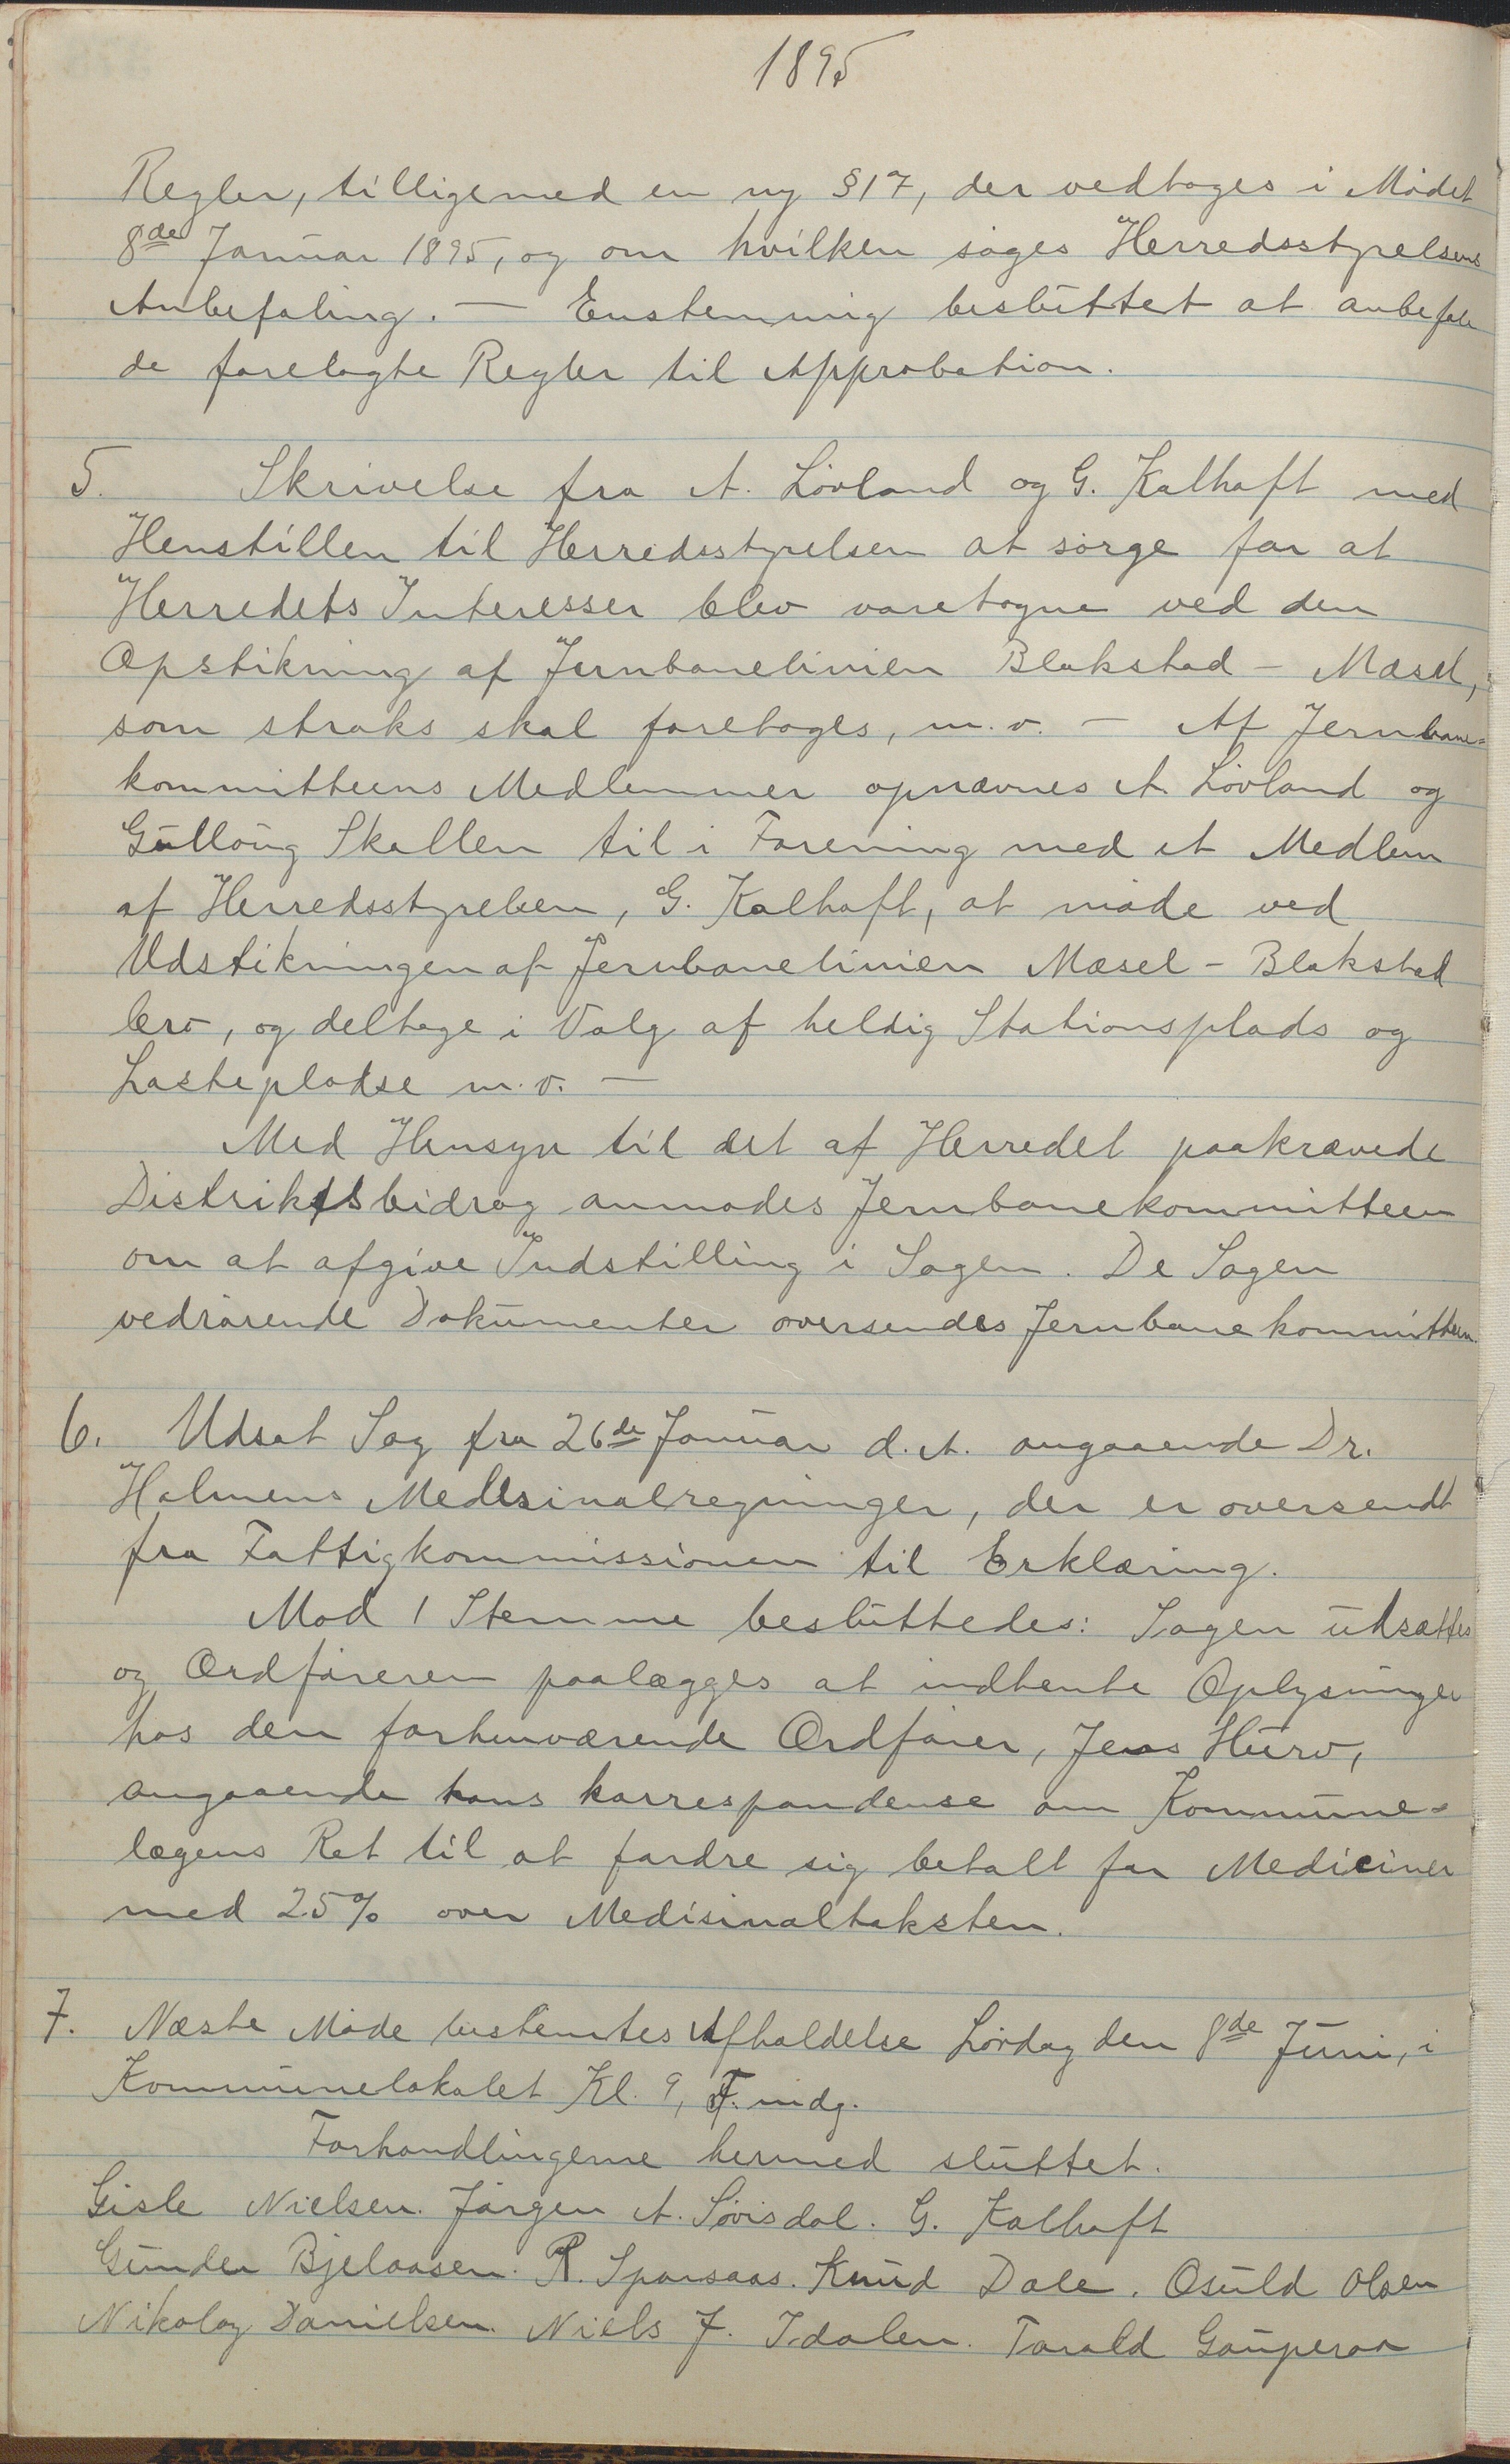 1895
Regler, tilligemed en ny §17, der vedtoges i Mødet
8de Januar 1895, og om hvilken søges Herredsstyrelsens
Anbefaling. — Enstemmig besluttet at anbefale
de forelagte Regler til Approbation.
5. Skrivelse fra A. Løvland og G. Kalhaft med
Henstillen til Herredsstyrelsen at sørge for at
Herredets Interesser blev varetagne ved den
Opstikning af Jernbanelinien Blakstad - Mæsel,
som straks skal foretages, m.v. — Af Jernbane-
kommitteens Medlemmer opnævnes A. Løvland og
Gulloug Skallen til i Forening med et Medlem
af Herredsstyrelsen, G. Kalhaft, at møde ved
Udstikningen af Jernbanelinien Mæsel - Blakstad
bro, og deltage i Valg af heldig Stationsplads og
Lastepladse m.v. —
Med Hensyn til det af Herredet paakrævede
Distriktsbidrag anmodes Jernbanekommitteen
om at afgive Indstilling i Sagen. De Sagen
vedrørende Dokumenter oversendes Jernbanekommitteen.
6. Udsat Sag fra 26de Januar d.A. angaaende Dr.
Holmens Medisinalregninger, der er oversendt
fra Fattigkommissionen til Erklæring.
Mod 1 Stemme besluttedes: Sagen udsættes
og Ordføreren paalægges at indhente Oplysninger
hos den forhenværende Ordfører, Jens Hurv,
angaaende hans korrespondense om Kommune-
lægens Ret til at fordre sig betalt for Mediciner
med 25% over Medisinaltaksten.
7. Næste Møde bestemtes Afholdelse Lørdag den 8de Juni, i
Kommunelokalet Kl. 9, F.mdg.
Forhandlingerne hermed sluttet.
Gisle Nielsen. Jørgen A. Løvisdal. G. Kalhaft
Gunder Bjelaasen. R. Sporsaas. Knud Dale. Osuld Olsen
Nikolay Danielsen. Niels J. Idalen. Tarald Gauperaa